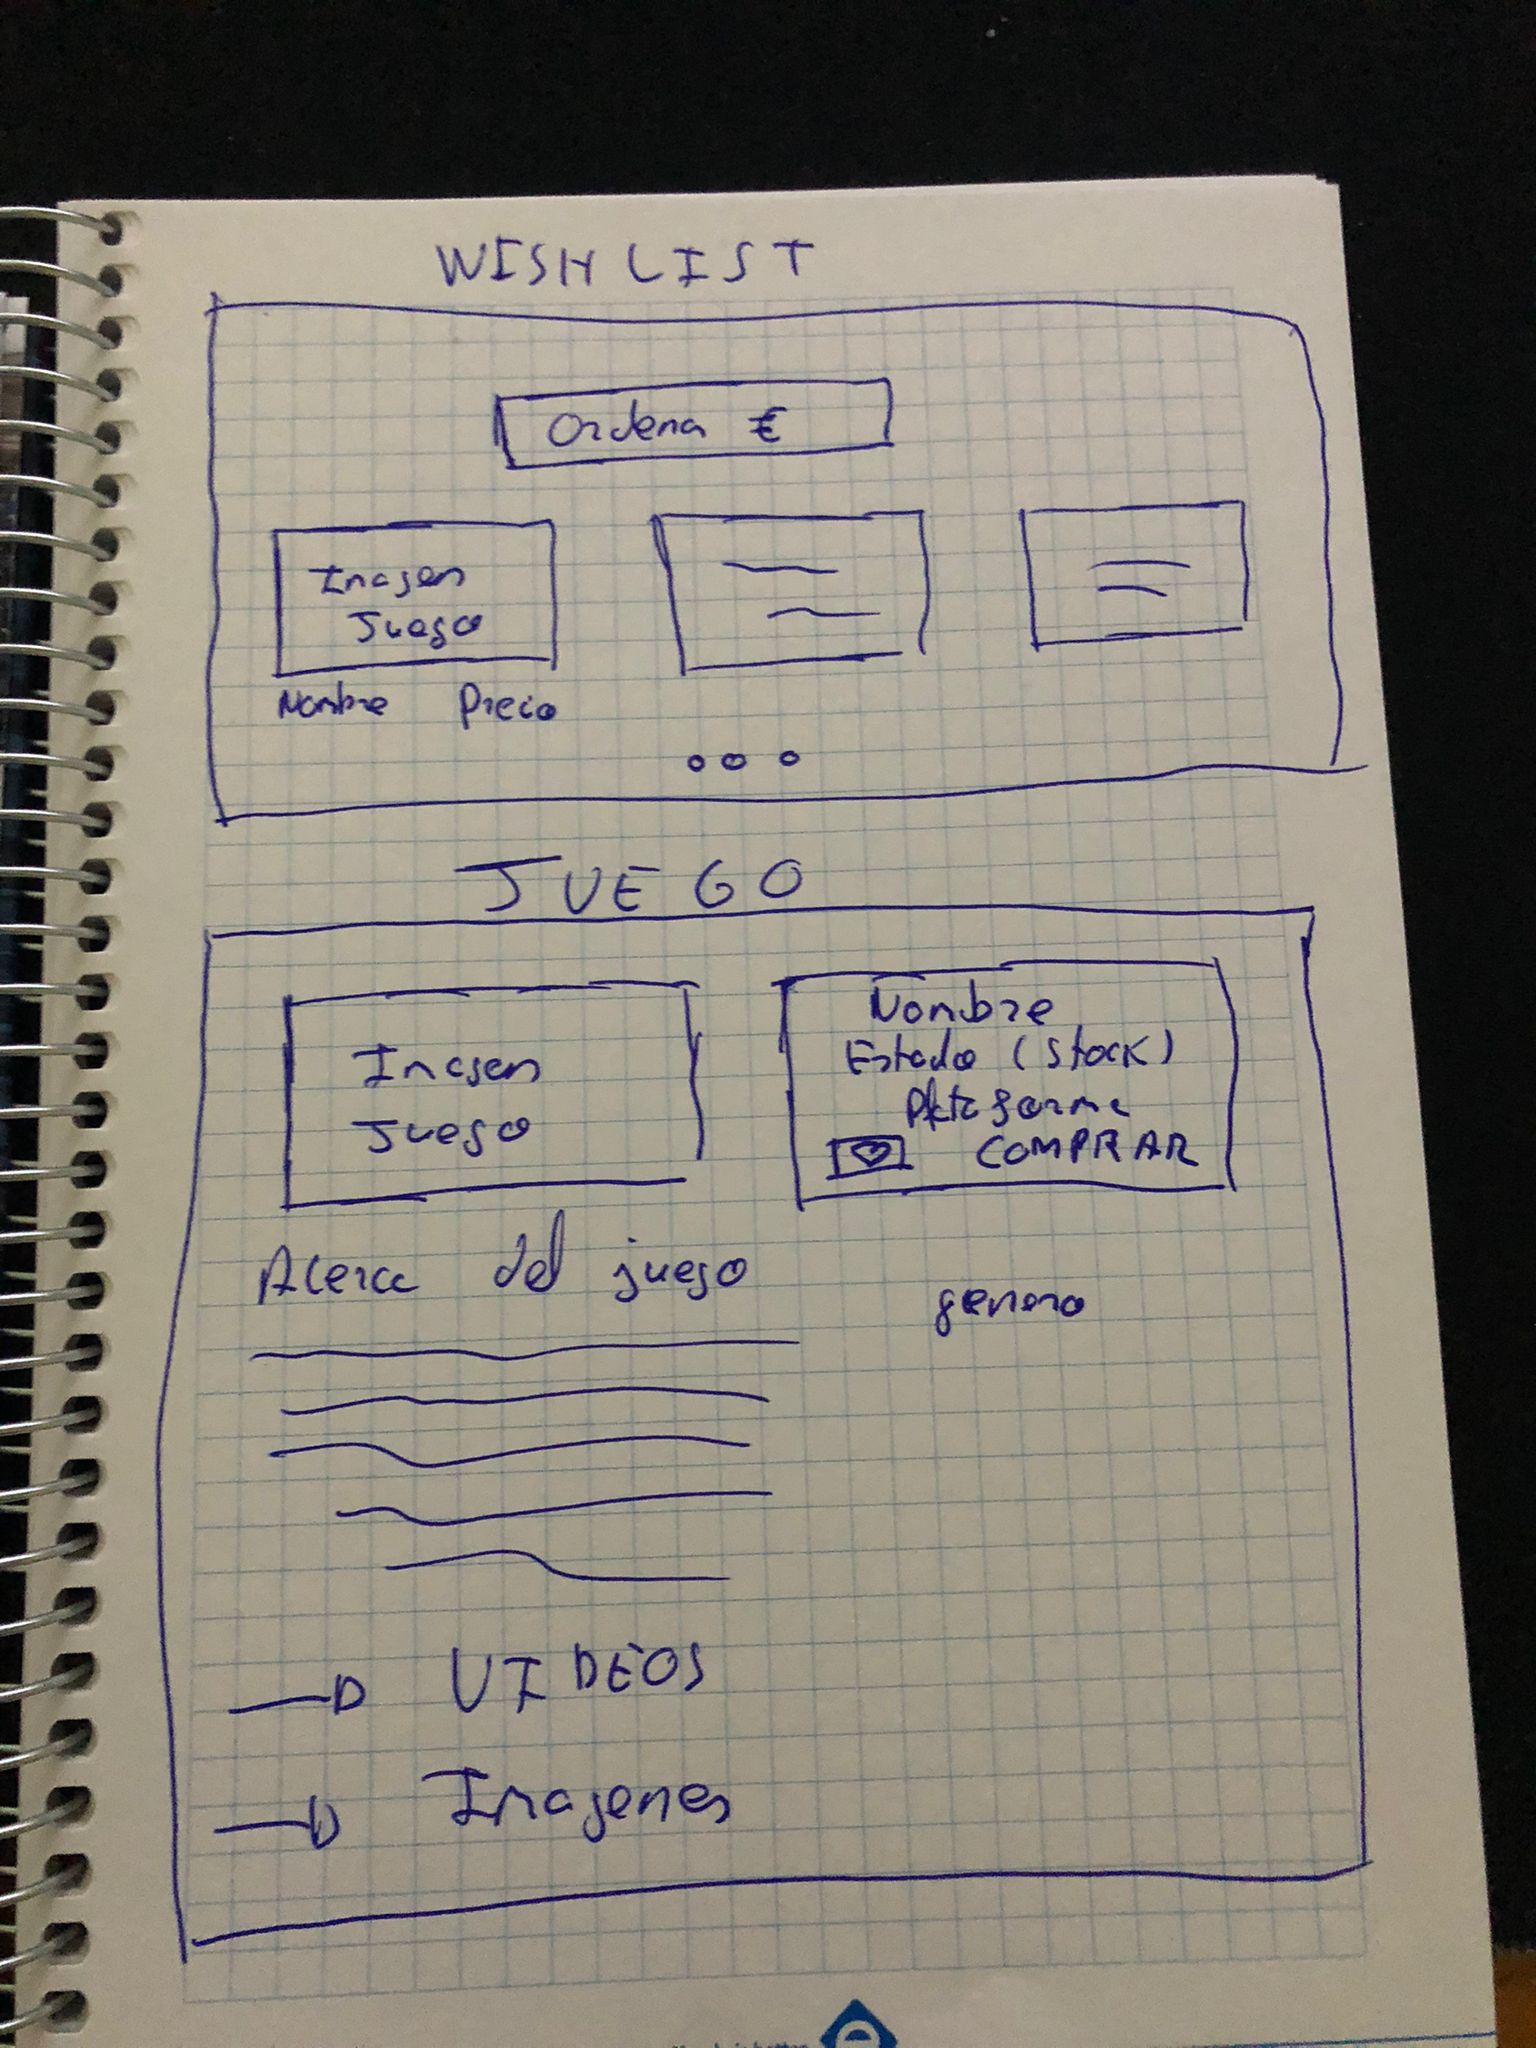 WISHLIST
Ordena €
Imagen
Juego
Nombre Precio
JUEGO
Imagen
Juego
Nombre
Estado (stock)
Plataforma
COMPRAR
Acerca del juego
genero
VIDEOS
Imagenes